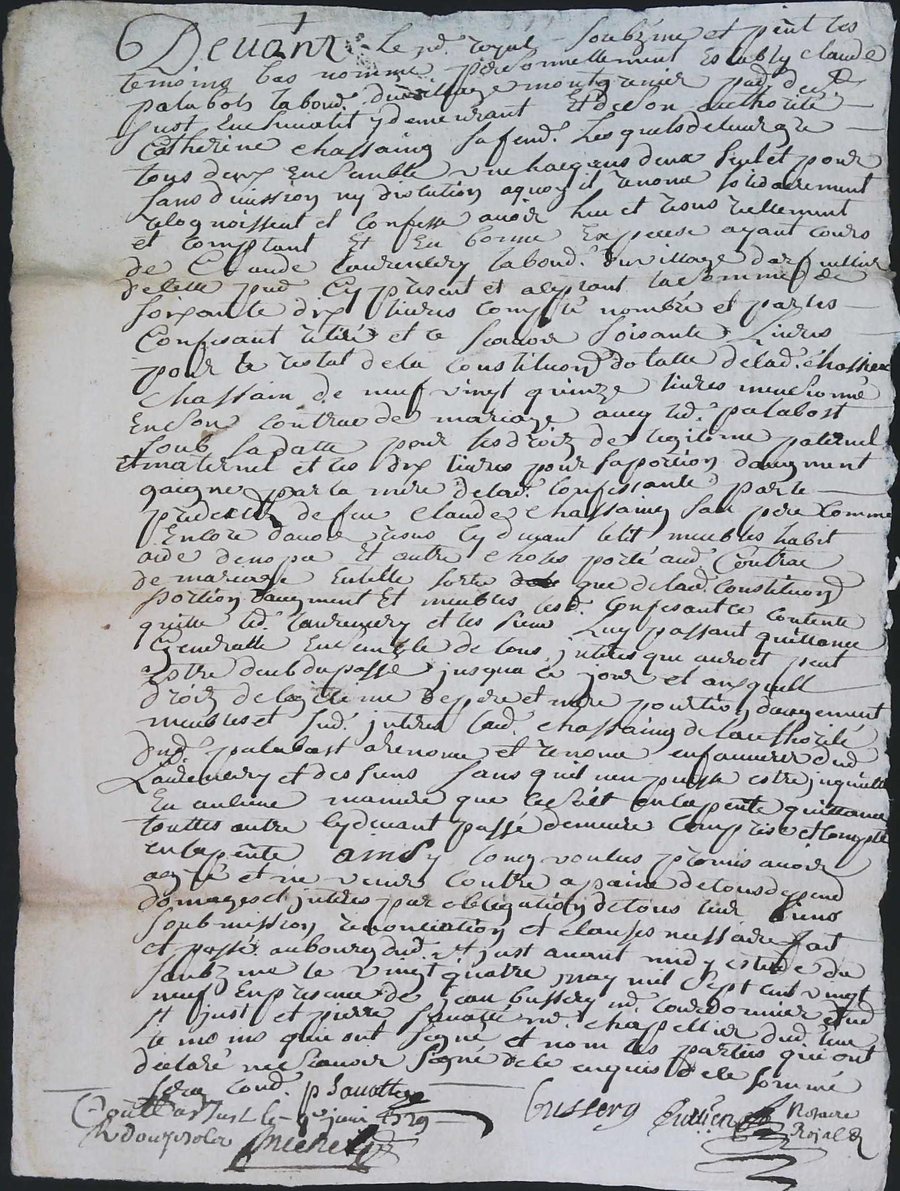 Devant Le nre. royal soubzne et pent les
temoins bas nommé personnellement estably claude
palabost labour. du village montgrenier pnd. de
st just en y demeurant Et de son authorité
Catherine chassaing sa fend. Lesquels de leur gre
tous deux ensemble un chacun deux seul et pour
sans division ny distution a quoy il renonc solidairement
recognoissent et confesse avoir heu et resus reellement
et comptant Et En bonne Expesse ayant cours
de Claude Laurencery labour. du village
de cette pnd Cy present et aceptant la somme de
soixante dix livres compté nombré et par les
Confesant retiré et ce scavoir soisante Livres
pour le restat de la constituon dotalle de lad.
chassain de neuf vingt quinze livres mensionné
En son contrac de mariage avecq led. palabost
soub sa datte pour ses droiz de legitime paternel
Et maternel et les dix livres pour sa portion daugment
gaigne par la mere de lad. Confessante par le
predeces de feu Claude Chassaing son pere Comme
Encore davoir resus cy devant le lit meubles habit
et autre choses porté aud. Contrac
de mariage En telle sorte que de lad. Constituon
portion daugment Et meubles lesd. Confesant ce contente
quitte led. Laurencery et les siens Luy passant quittance
generalle Ensemble de tous jnteres que auroit peut
estre deub du passé jusqua ce jour et ausquell
droiz de legitime de pere et mere portion daugement
meubles et susd. jnteres lad. chassaing de lauthorité
dud. palabost a renoncé et renonce en faveur dud
Laurencery et des siens sans quil nen puisse estre jnquietté
En aulcune maniere que ce soit en la pente quittance
touttes autre cy devant passé demeure comprise et compté
en la pente Ainsy long voulus promis avoir
agré et ne venir contre a paine de tous depend
domages et jnteres par obligation de tous leur biens
soubmission renonciation et clauses nessaire fait
et passé au bourg dud. st just avant midy estude du
soubzne le vingt quatre may mil sept cent vingt
neuf En presence de jean bussery md. cordonnier dud
st just et pierre sauatte md. chappellier dud. lieu
temoins qui ont signé et non les parties qui ont
declaré ne scavoir signé de ce enquis de le sommé
p Sauatte
Bussery Jullien Notaire
Roial
Conttle a st Just le juin 1729
R douze sols
Michel